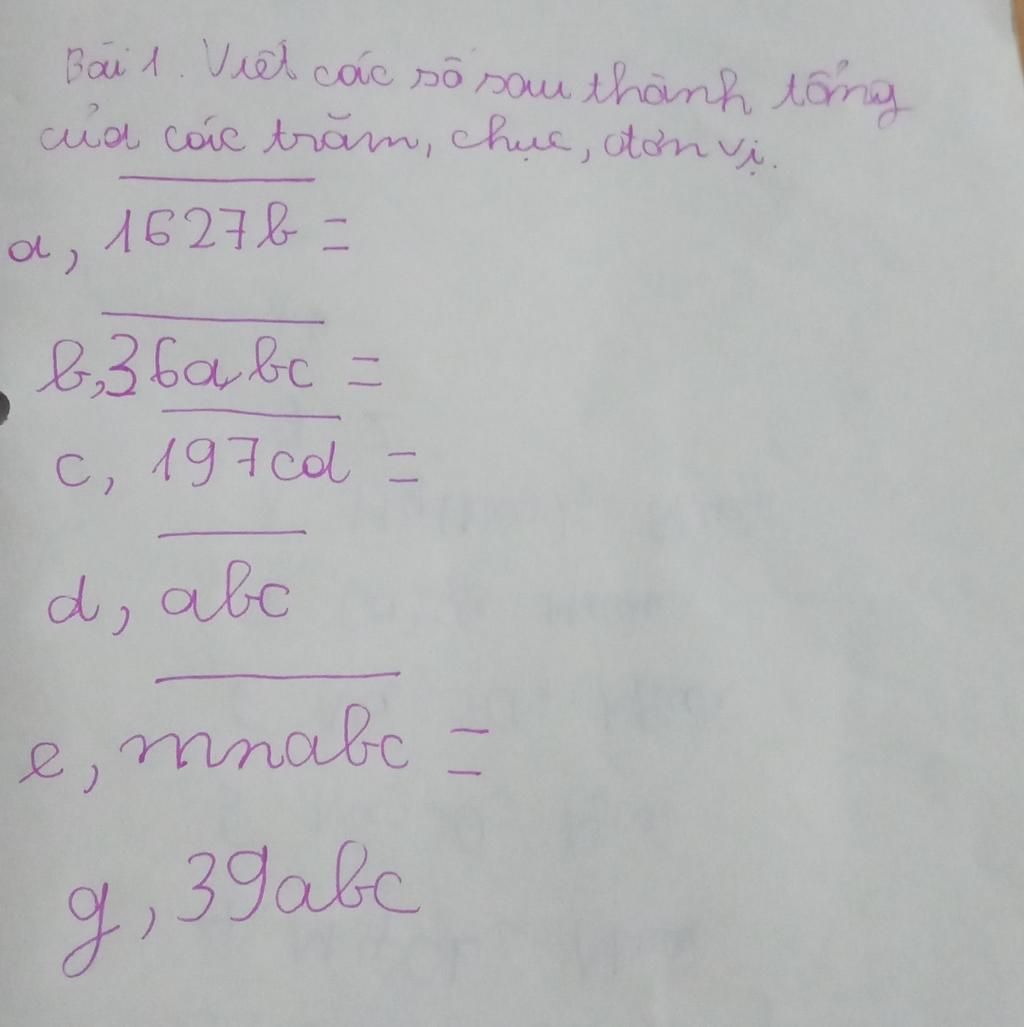 Bài 1. Viết các số sau thành tổng
của các trăm, chục, đơn vị.
a, 1627b =
b, 36abc =
c, 197cd =
d, abc
e, mnabc =
g, 39abc